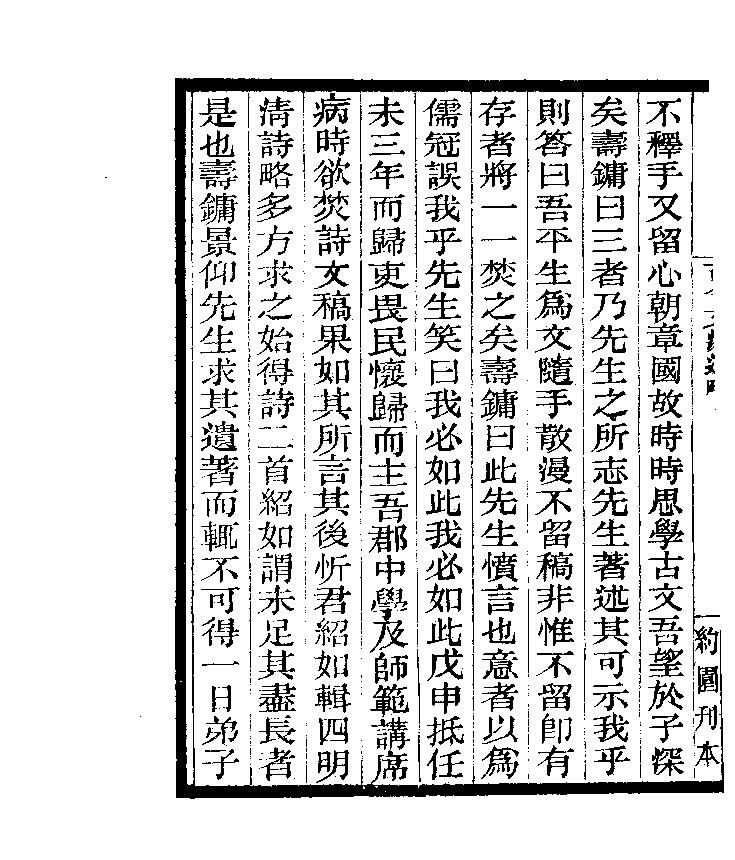 不釋手又留心朝章國故時時思學古文吾望於子深
矣壽鏞曰三者乃先生之所志先生著述其可示我乎
則答曰吾平生爲文隨手散漫不留稿非惟不留卽有
存者將一一焚之矣壽鏞曰此先生憤言也意者以爲
儒冠誤我乎先生笑曰我必如此我必如此戊申抵任
未三年而歸吏畏民懷歸而主吾郡中學及師範講席
病時欲焚詩文稿果如其所言其後忻君紹如輯四明
淸詩略多方求之始得詩二首紹如謂未足其盡長者
是也壽鏞景仰先生求其遺著而輒不可得一日弟子
約園刊本